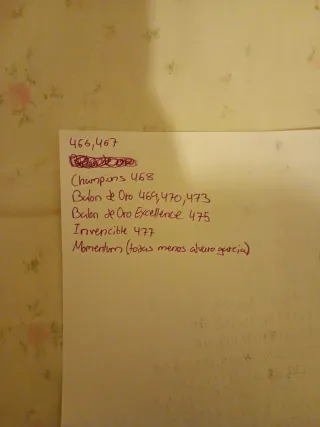 466,467
Champions 468
Balon de Oro 469,470,473
Balon de Oro Excellence 475
Invencible 477
Momentum (todas menos alvaro garcia)